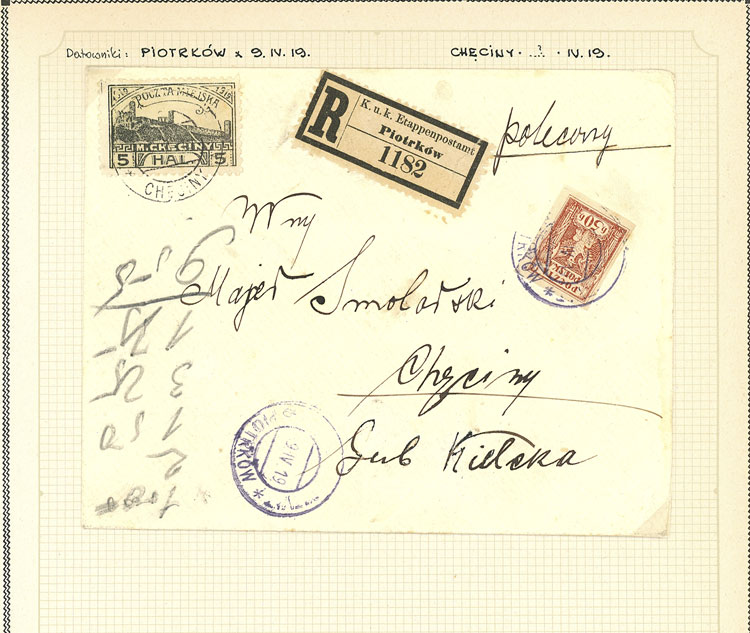 Datowniki: PIOTRKÓW x 9. IV. 19.
CHĘCINY · ...?... · IV. 19.
1919
POCZTA MIEJSKA
M. CHĘCINY
5 HAL. 5
CHĘCINY
R
K. u. k. Etappenpostamt
Piotrków
1182
polecony
50 h
POCZTA
POLSKA
Wny
Majer Smoladski
Chęciny
Gub Kielcka
PIOTRKÓW
9 IV 19
9
1
3 25
1 50
2